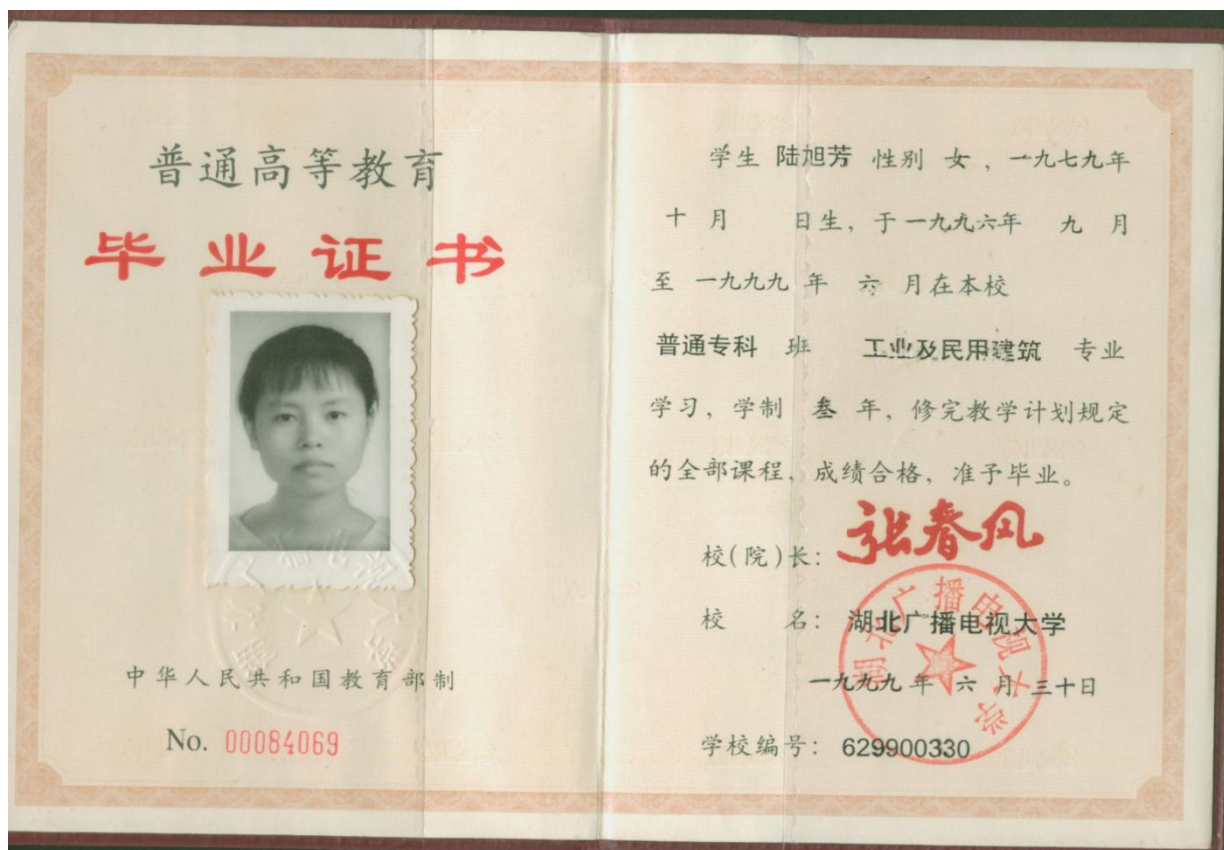 普通高等教育
毕业证书
中华人民共和国教育部制
No. 00084069
学生 陆旭芳 性别 女，一九七九年
十 月 日生，于一九九六年 九 月
至 一九九九 年 六 月在本校
普通专科 班 工业及民用建筑 专业
学习，学制 叁 年，修完教学计划规定
的全部课程，成绩合格，准予毕业。
校(院)长：张春风
校 名：湖北广播电视大学
湖北广播电视大学
一九九九 年 六 月 三十日
学校编号：629900330